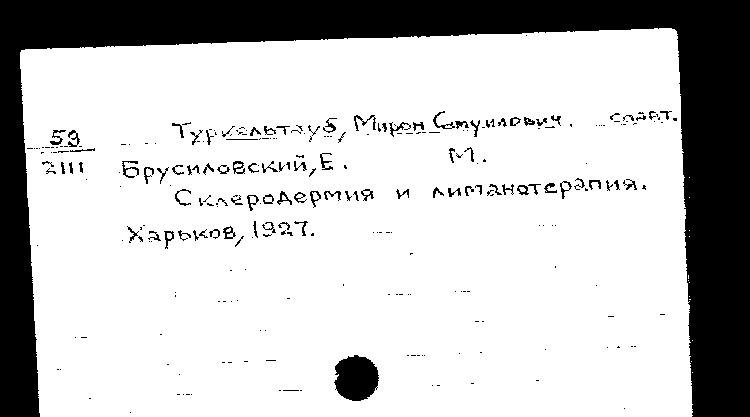 59 Туркельтауб, Мирон Самуилович. соавт.
2111 Брусиловский, Е. М.
Склеродермия и лиманотерапия.
Харьков, 1927.